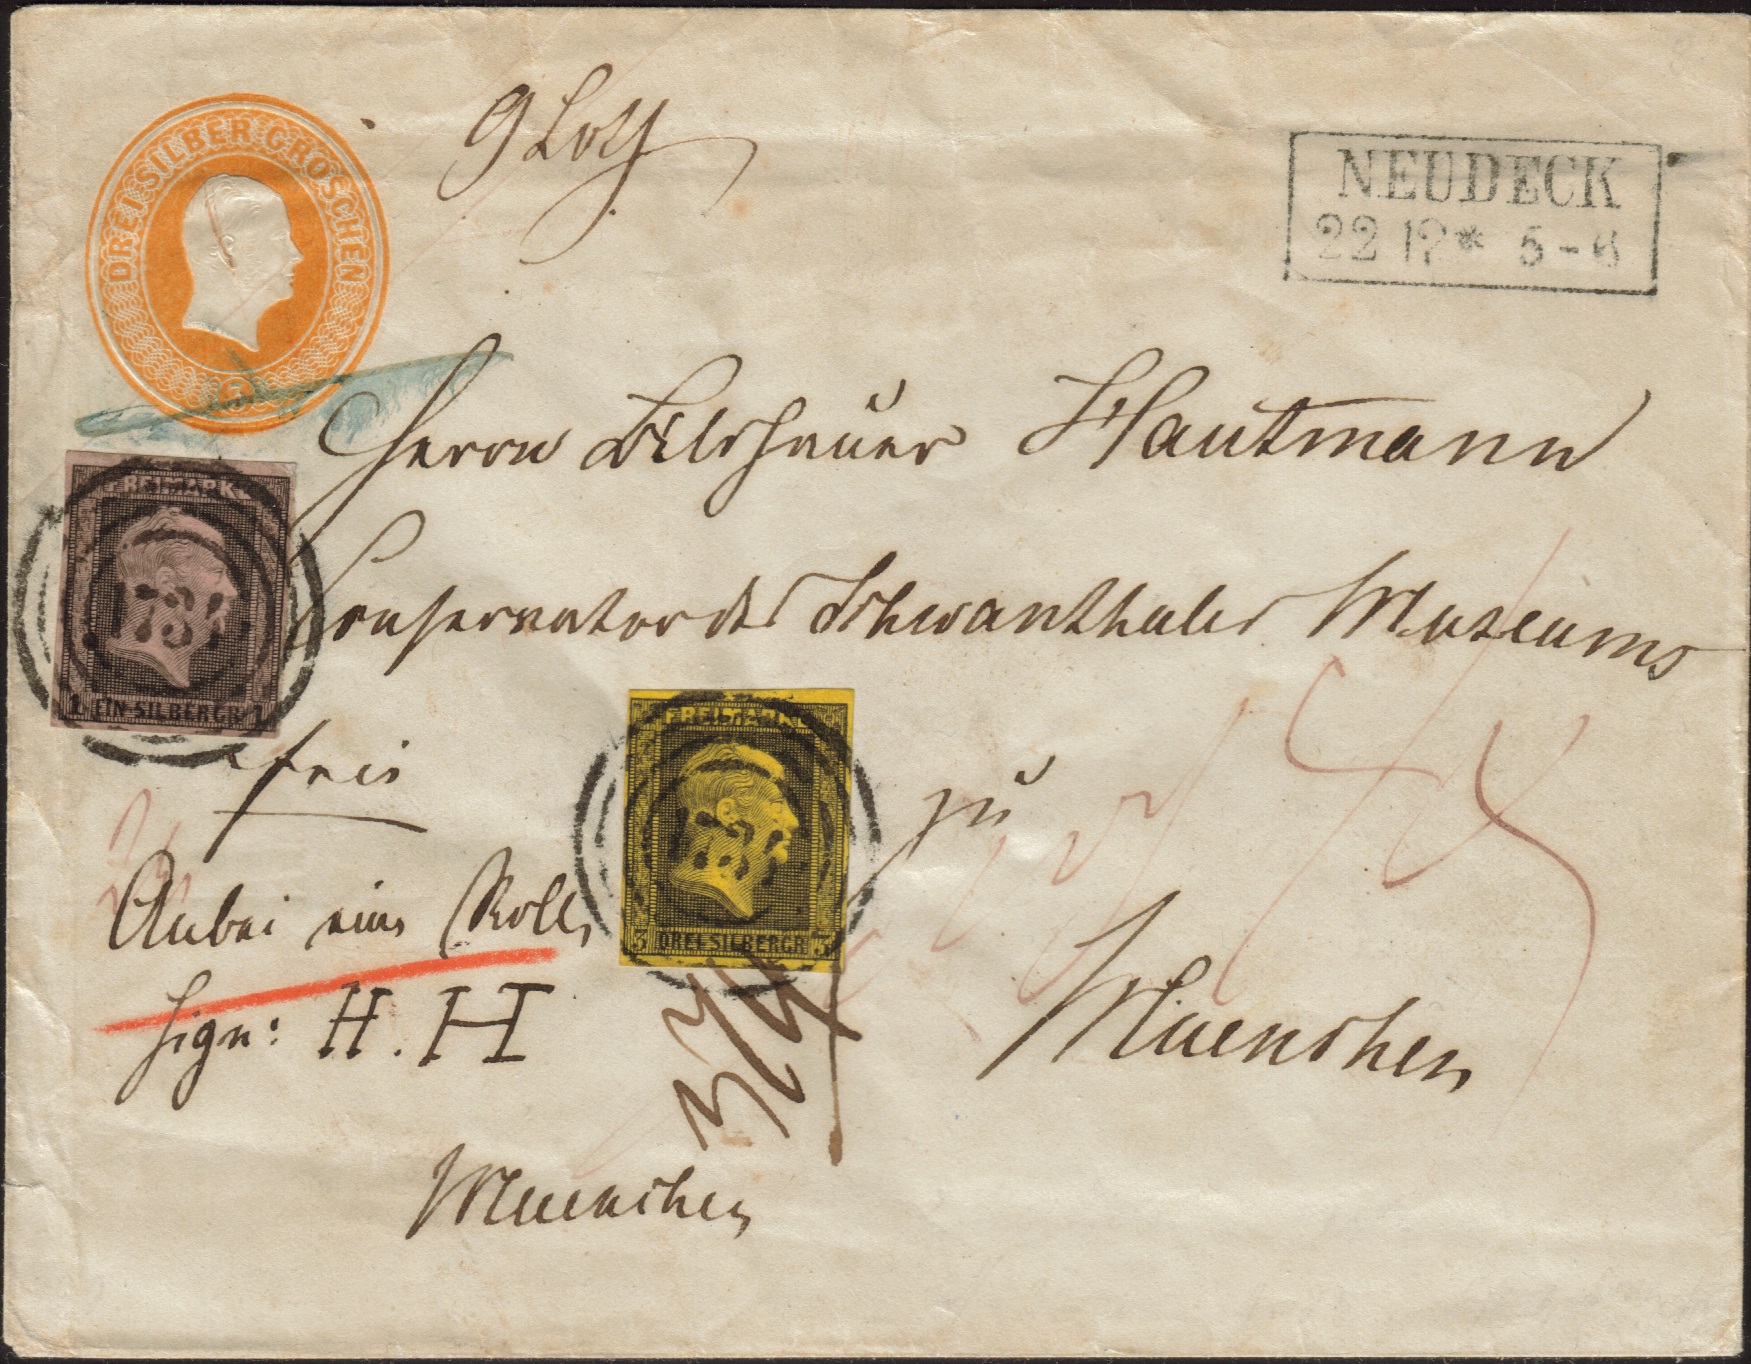 DREI SILBER GROSCHEN
3
9 Loth
NEUDECK
22 12 * 5-6
Herrn Bildhauer Hautmann
Conservator des Schwanthaler Museums
FREIMARKE
1 EIN SILBERGR. 1
frei
zu
FREIMARKE
3 DREI SILBERGR. 3
Anbei eine Rolle
sign: H. H
Muenchen
Muenchen